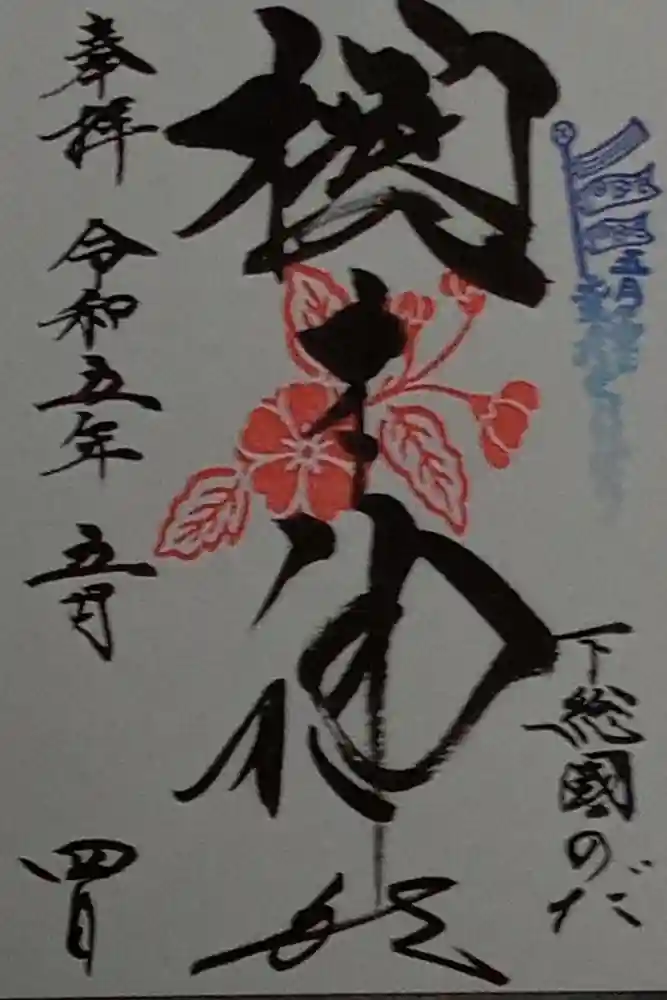 五月
下総國のだ
櫻木神社
奉拝 令和五年 五月 四日